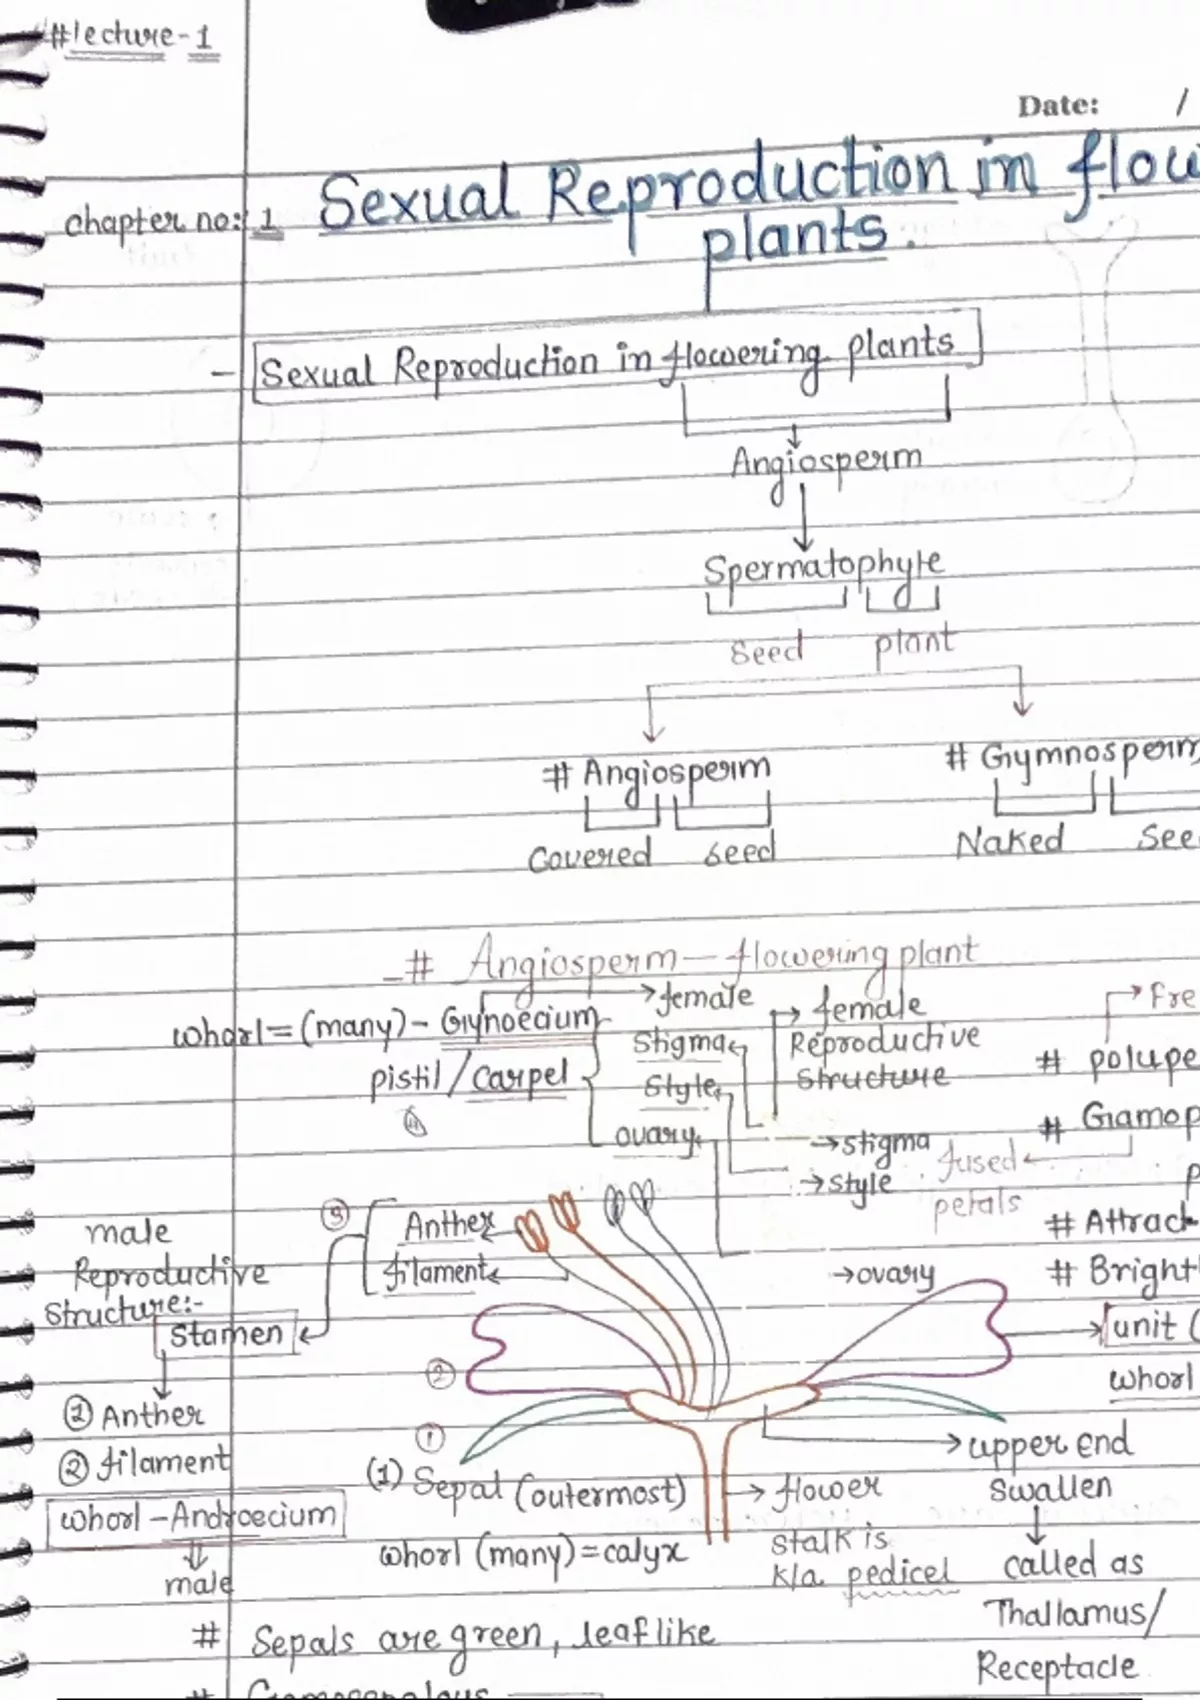 #lecture-1
Date: /
chapter no: 1 Sexual Reproduction in flow
plants.
- Sexual Reproduction in flowering plants
Angiosperm
Spermatophyte
Seed plant
# Angiosperm # Gymnosperm
Covered seed Naked See
# Angiosperm — flowering plant
whorl = (many) - Gynoecium → female
pistil / Carpel
Stigma
Style
ovary
→ female
Reproductive
structure
→ Fre
# polupe
# Gamop
fused
petals
p
→ stigma
→ style
→ ovary
# Attract
# Bright
unit (
whorl
male
Reproductive
structure:-
Stamen
③ Anther
filament
① Anther
② filament
whorl - Androecium
male
②
①
(1) Sepal (outermost)
whorl (many) = calyx
→ flower
stalk is
k/a pedicel
→ upper end
Swallen
called as
Thallamus/
Receptacle
# Sepals are green, leaf like